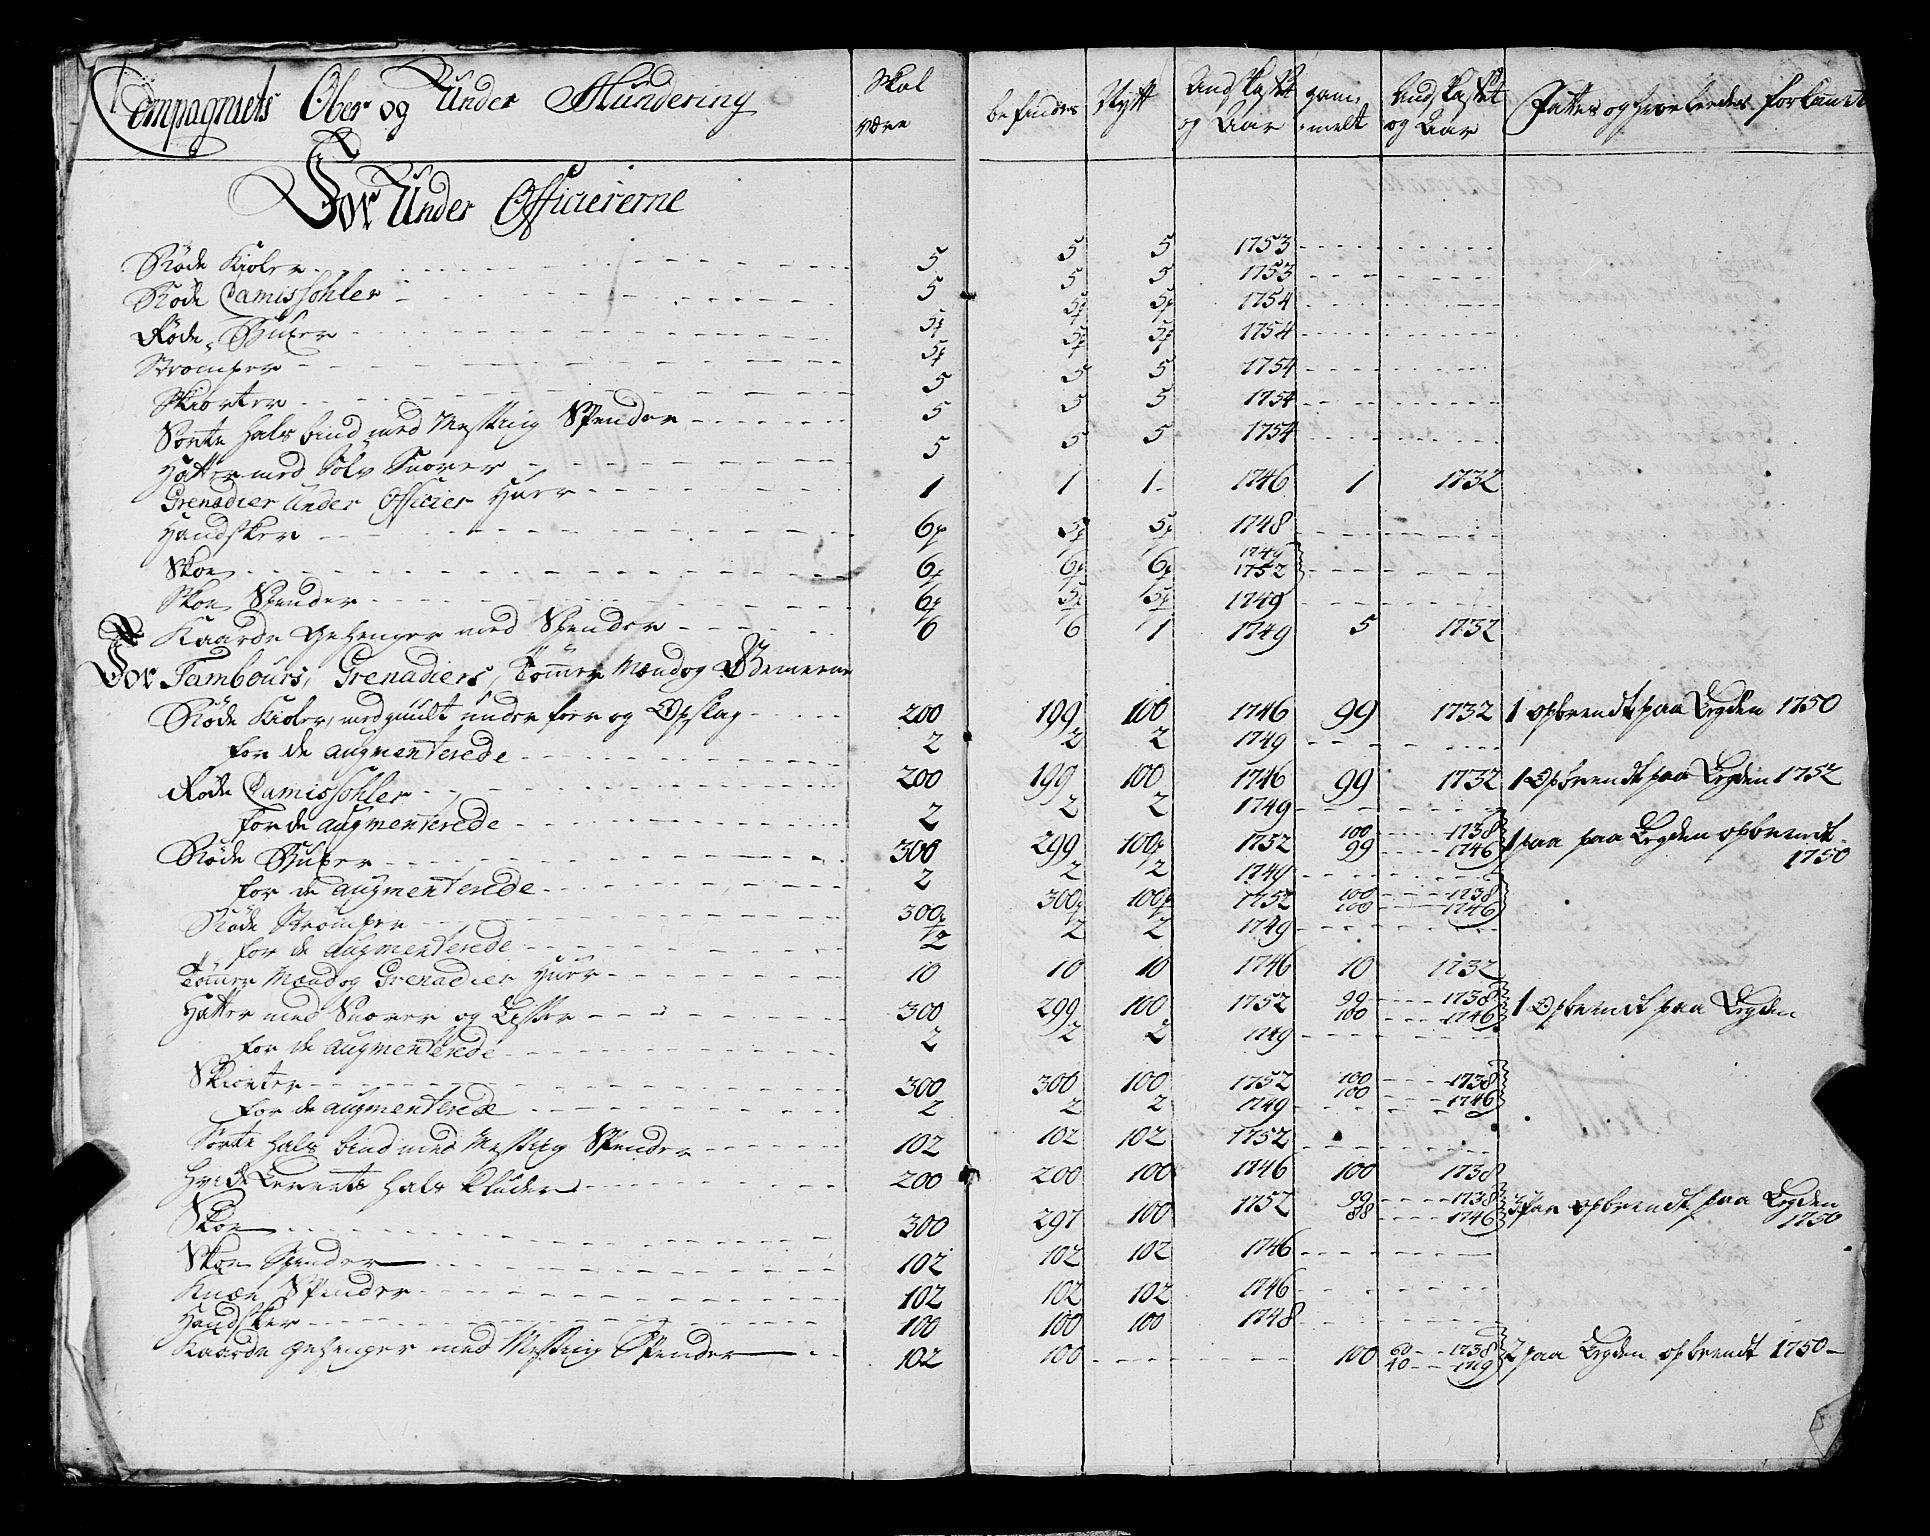 Compagniets Ober og Under Mundering | Skal være | befindes | Nytt | Andskaffet og Aar | gam: melt | Andskaffet og Aar | Fattes og hvorleedes forkommet
For Under Officiererne
Røde Kioler 5 | 5 | 5 | 1753
Røde Camissohler 5 | 5 | 5 | 1753
Røde Buxer 5p | 5p | 5p | 1754
Strømper 5p | 5p | 5p | 1754
Skiorter 5 | 5 | 5 | 1754
Sorte Hals bind med Messing Spender 5 | 5 | 5 | 1754
Hatter med Sølv Snorer 5 | 5 | 5 | 1754
Grenadier Under Officier Huer 1 | 1 | 1 | 1746 | 1 | 1732
Handsker 6p | 5p | 5p | 1748
Skoe 6p | 6p | 6p | 1749 1752
Skoe Spender 6p | 5p | 5p | 1749
Kaarde Gehenger med Spender 6 | 6 | 1 | 1749 | 5 | 1732
For Tambours, Grenadiers, Tømer Mænd og Gemeene
Røde Kioler, med guult under foer og Opslag 200 | 199 | 100 | 1746 | 99 | 1732 | 1 opbrendt paa Legden 1750
for de augmenterede 2 | 2 | 2 | 1749
Røde Camissohler 200 | 199 | 100 | 1746 | 99 | 1732 | 1 Opbrendt paa Legden 1752
for de augmenterede 2 | 2 | 2 | 1749
Røde Buxer 300 | 299 | 100p | 1752 | 100 99 | 1738 1746 | 1 paa paa Legden opbrendt 1750
for de augmenterede 2 | 2 | 2 | 1749
Røde Strømper 300p | 300p | 100p | 1752 | 100 100 | 1738 1746
for de augmenterede 2 | 2 | 2 | 1749
Tømer Mænd og Grenadier Huer 10 | 10 | 10 | 1746 | 10 | 1732
Hatter med Snorer og Lisser 300 | 299 | 100 | 1752 | 99 100 | 1738 1746 | 1 Opbrendt paa Legden
for de augmenterede 2 | 2 | 2 | 1749
Skiorter 300 | 300 | 100 | 1752 | 100 100 | 1738 1746
for de augmenterede 2 | 2 | 2 | 1749
Sorte Hals bind med Messing Spender 102 | 102 | 102 | 1752
Hvide Lerrets Hals Kluder 200 | 200 | 100 | 1746 | 100 | 1738
Skoe 300 | 297 | 100 | 1752 | 99 88 | 1738 1746 | 3 par opbrendt paa Legden 1750
Skoe Spender 102 | 102 | 102 | 1746
Knæe Spender 102 | 102 | 102 | 1746
Handsker 100 | 100 | 100 | 1748
Kaarde gehenger med Messing Spender 102 | 100 | 100 | 60 1738 40 1719 | 2 paa Legden opbrendt 1750